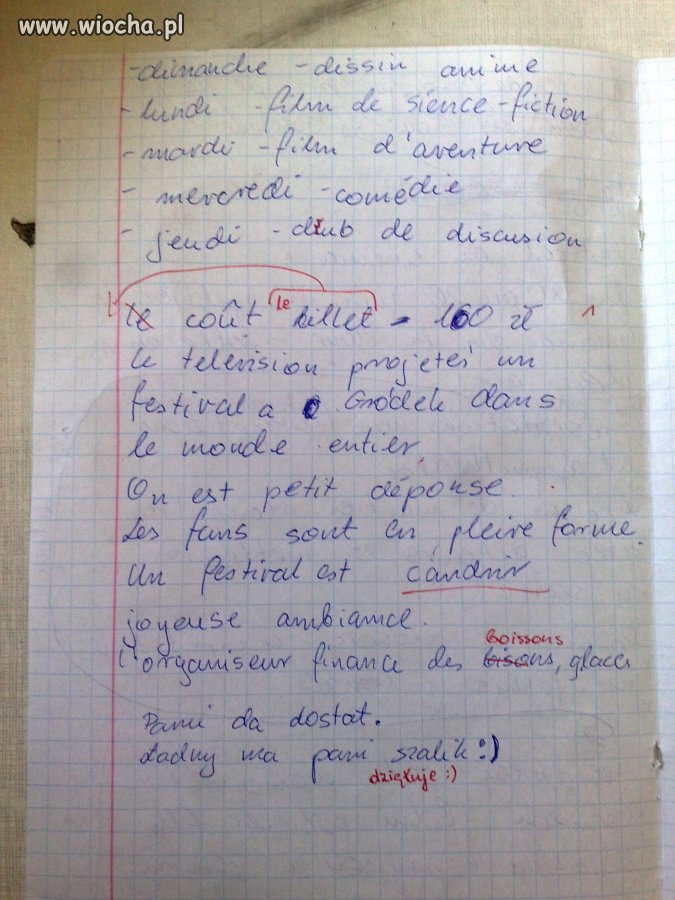 www.wiocha.pl
-dimanche -dissin anime
- lundi -film de sience-fiction
-mardi -film d'aventure
- mercredi -comédie
- jeudi - club de discusion
le coût le billet - 160 zł
le television projeteś un
festival a Gródek dans
le monde entier.
On est petit dépouse.
Les fans sont en pleire forme.
Un festival est candnir
joyeuse ambiance.
l'organiseur finance des bisons, glaces
boissons
Pani da dostat.
Ładny ma pani szalik :)
dziękuje :)